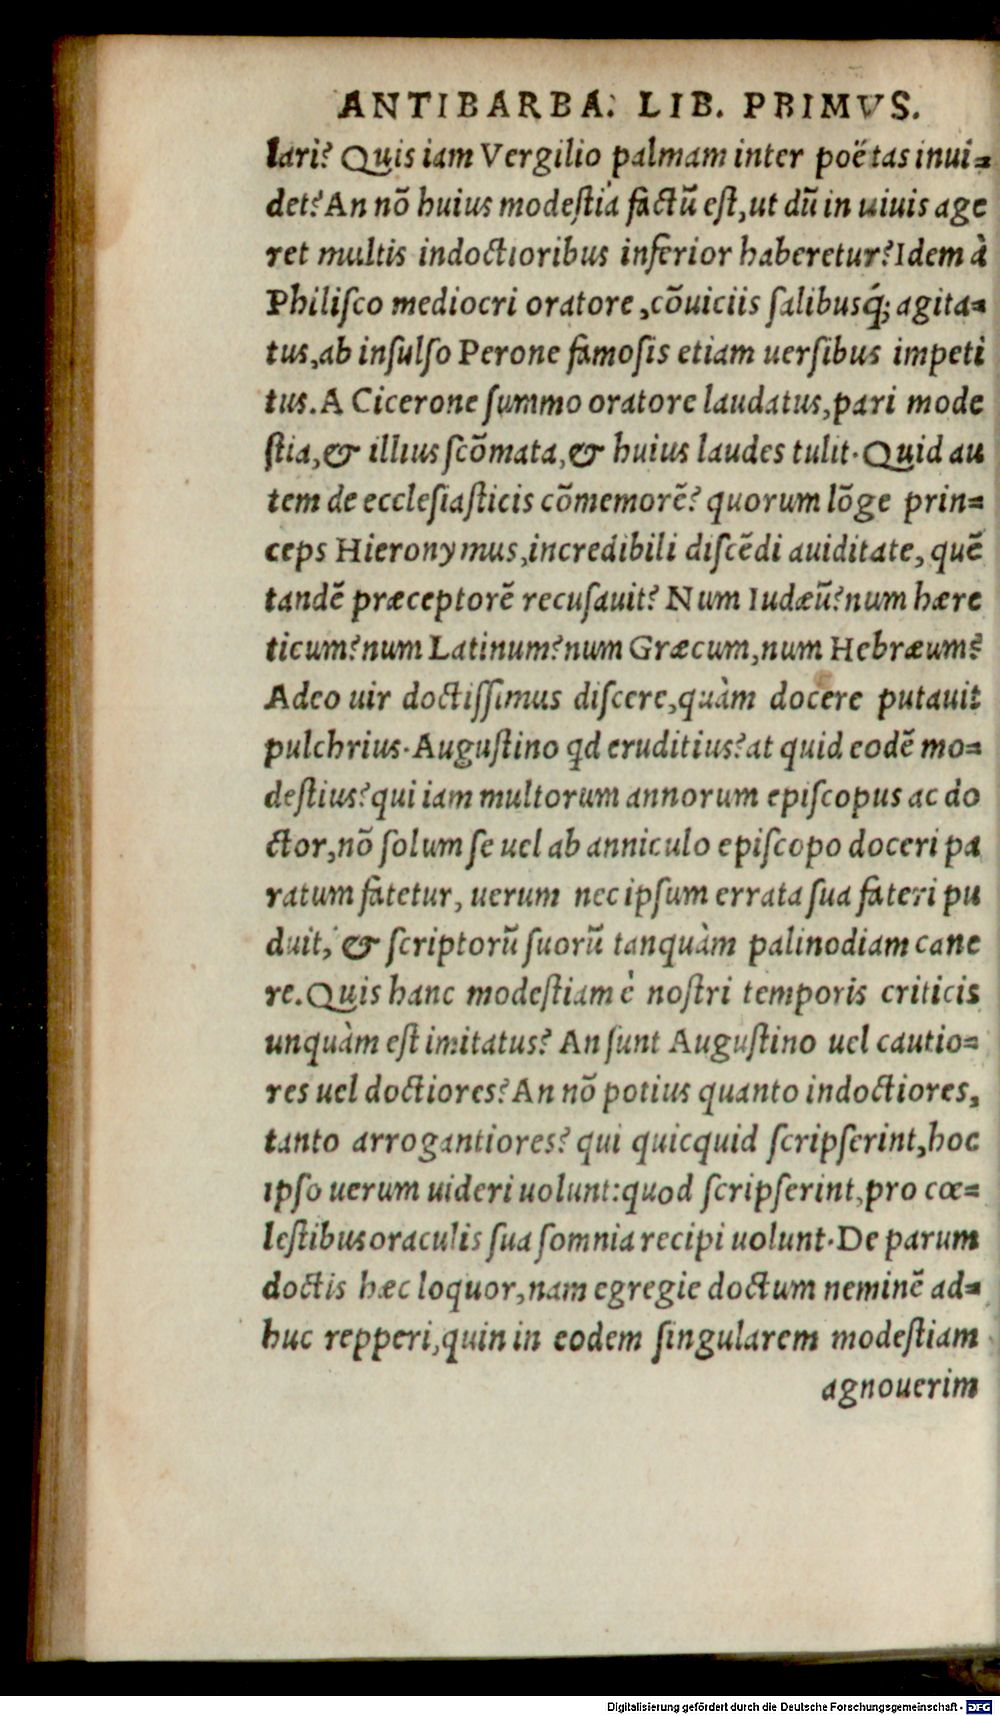 ANTIBARBA. LIB. PBIMVS.
lari? Quis iam Vergilio palmam inter poëtas inui=
det? An nō huius modestia factū est, ut dū in uiuis age
ret multis indoctioribus inferior haberetur? Idem à
Philisco mediocri oratore, cōuiciis salibusq́; agita=
tus, ab insulso Perone famosis etiam uersibus impeti
tus. A Cicerone summo oratore laudatus, pari mode
stia, & illius scōmata, & huius laudes tulit. Quid au
tem de ecclesiasticis cōmemorē? quorum lōge prin=
ceps Hieronymus, incredibili discēdi auiditate, quē
tandē præceptorē recusauit? Num Iudæū? num hære
ticum? num Latinum? num Græcum, num Hebræum?
Adeo uir doctissimus discere, quàm docere putauit
pulchrius. Augustino qd eruditius? at quid eodē mo=
destius? qui iam multorum annorum episcopus ac do
ctor, nō solum se uel ab anniculo episcopo doceri pa
ratum fatetur, uerum nec ipsum errata sua fateri pu
duit, & scriptorū suorū tanquàm palinodiam cane
re. Quis hanc modestiam è nostri temporis criticis
unquàm est imitatus? An sunt Augustino uel cautio=
res uel doctiores? An nō potius quanto indoctiores,
tanto arrogantiores? qui quicquid scripserint, hoc
ipso uerum uideri uolunt: quod scripserint, pro cœ=
lestibus oraculis sua somnia recipi uolunt. De parum
doctis hæc loquor, nam egregie doctum neminē ad=
huc repperi, quin in eodem singularem modestiam
agnouerim
Digitalisierung gefördert durch die Deutsche Forschungsgemeinschaft - DFG